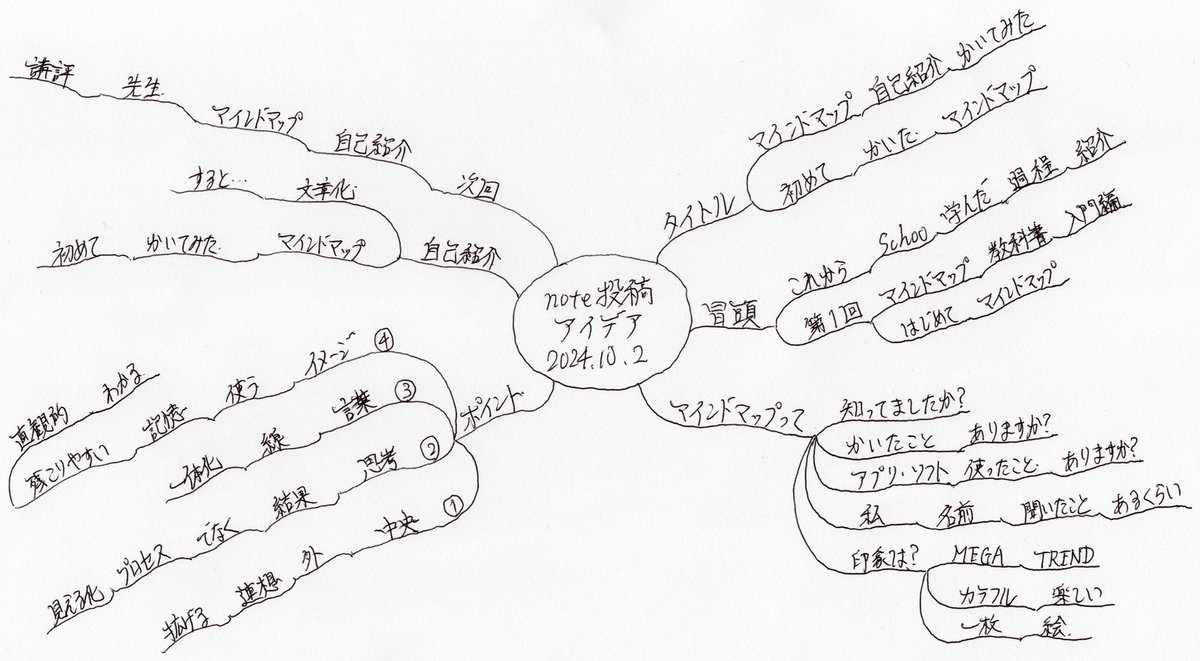 note投稿
アイデア
2024.10.2
タイトル
マインドマップ 自己紹介 かいてみた
初めて かいた マインドマップ
冒頭
これから Schoo 学んだ 過程 紹介
第1回 マインドマップ 教科書 入門編
はじめて マインドマップ
マインドマップって
知ってましたか?
かいたこと ありますか?
アプリ・ソフト 使ったこと ありますか?
私 名前 聞いたこと あるくらい
印象は? MEGA TREND
カラフル 楽しい
一枚 絵
ポイント
① 中央 外 連想 拡げる
② 思考 結果 でなく プロセス 見える化
③ 言葉 線 一体化
④ イメージ 使う 記憶 残こりやすい
直観的 わかる
自己紹介
マインドマップ かいてみた 初めて
文章化 すると…
次回
自己紹介 マインドマップ 先生 講評